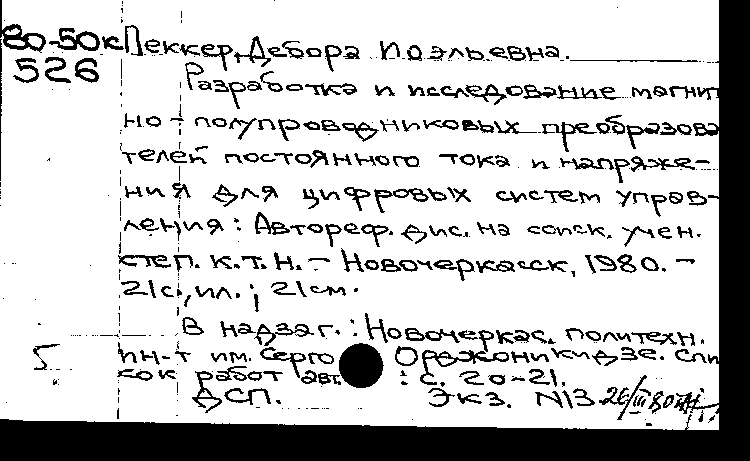 80-50к Пеккер, Дебора Иоэльевна.
526
Разработка и исследование магнит
но-полупроводниковых преобразова
телей постоянного тока и напряже-
ния для цифровых систем управ-
ления: Автореф. дис. на соиск. учен.
степ. к.т.н. - Новочеркасск, 1980. -
21с., ил.; 21см.
В надзаг.: Новочеркас. политехн.
ин-т им. Серго Орджоникидзе. Спи
сок работ авт.: с. 20-21.
ДСП. Экз. N13
5